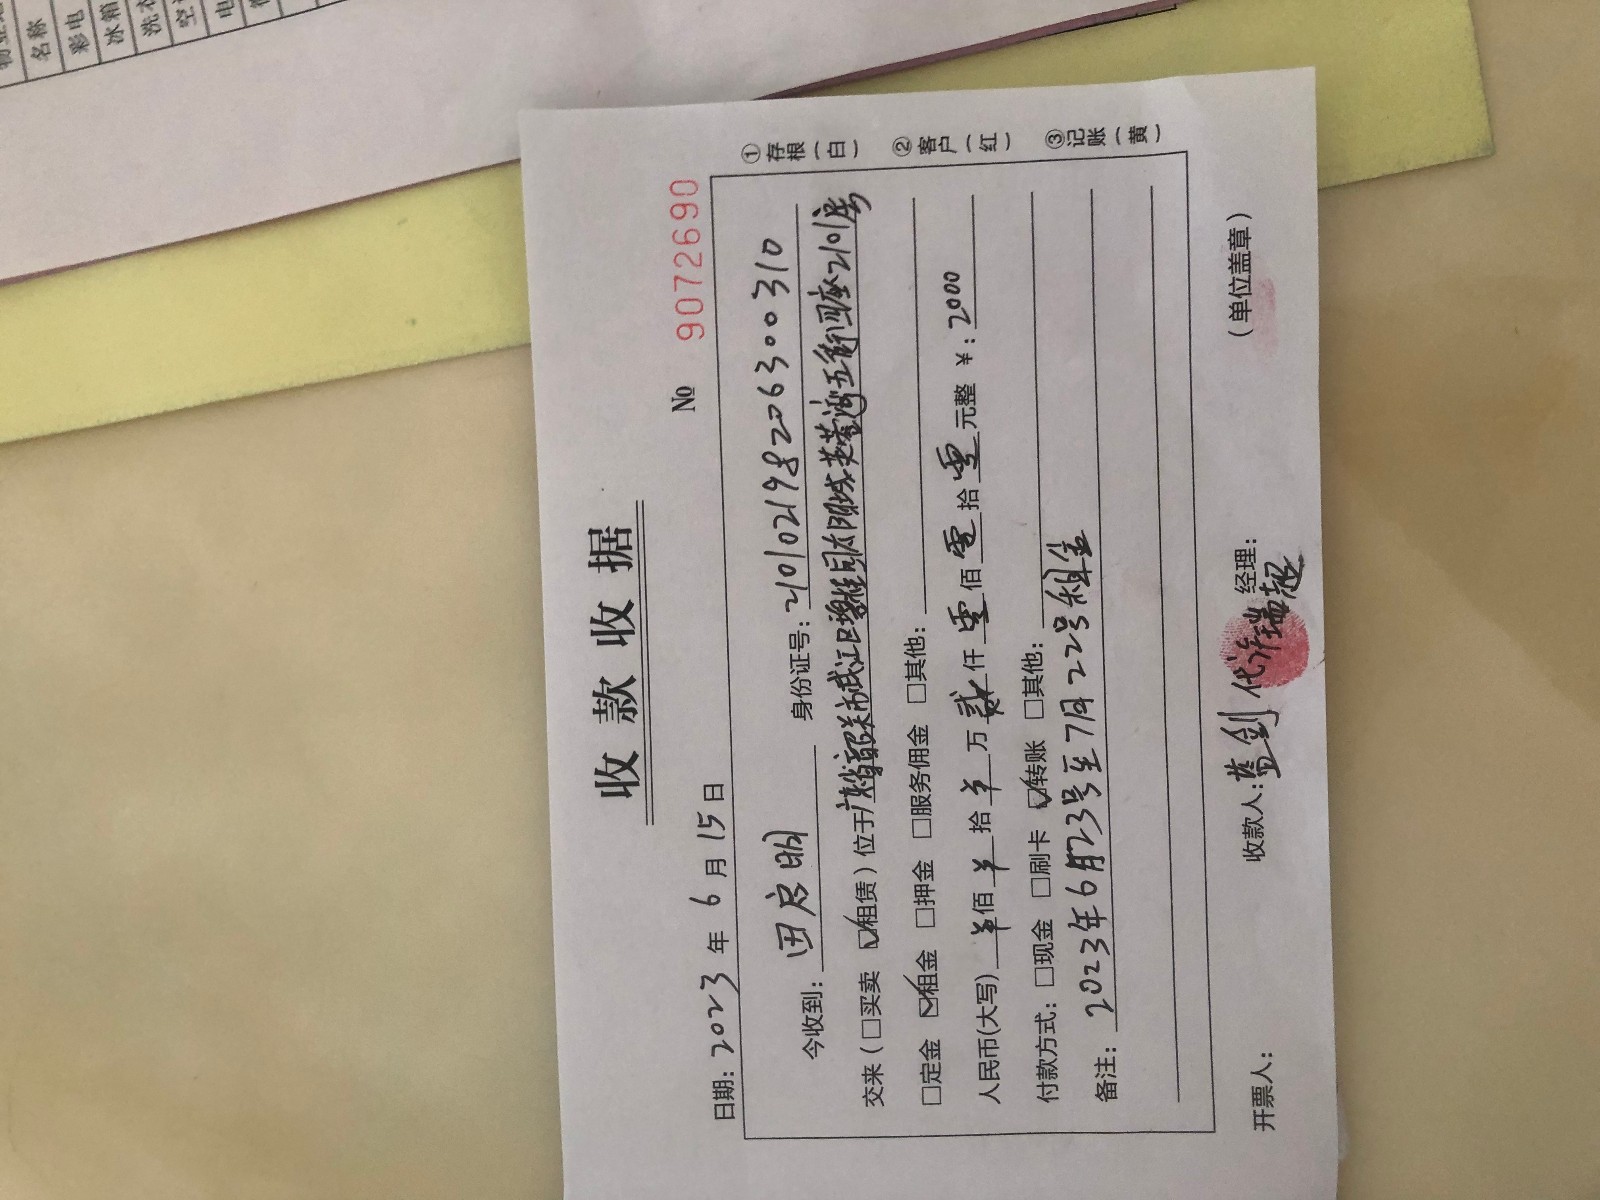 收款收据
№ 9072690
日期: 2023 年 6 月 15 日
今收到: 田启明 身份证号: 210102198206300310
交来（□买卖 ☑租赁）位于广东省韶关市武江区 芙蓉湾五街 座2101房
□定金 ☑租金 □押金 □服务佣金 □其他:
人民币(大写) 羊佰 羊拾 羊万 贰仟 零佰 零拾 零元整 ¥: 2000
付款方式: □现金 □刷卡 ☑转账 □其他:
备注: 2023年6月23号至7月22号租金
开票人: 收款人: 蓝剑代 经理: （单位盖章）
①存根（白） ②客户（红） ③记账（黄）
名称
彩电
冰箱